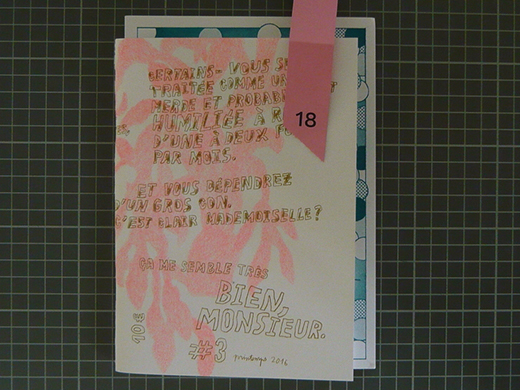 CERTAINS- VOUS SE
TRAITÉE COMME UN
MERDE ET PROBABL
HUMILIÉE À R
D'UNE À DEUX FO
PAR MOIS.
ET VOUS DÉPENDREZ
D'UN GROS CON.
C'EST CLAIR MADEMOISELLE?
ÇA ME SEMBLE TRÈS
BIEN,
MONSIEUR.
10€
#3 printemps 2016
18